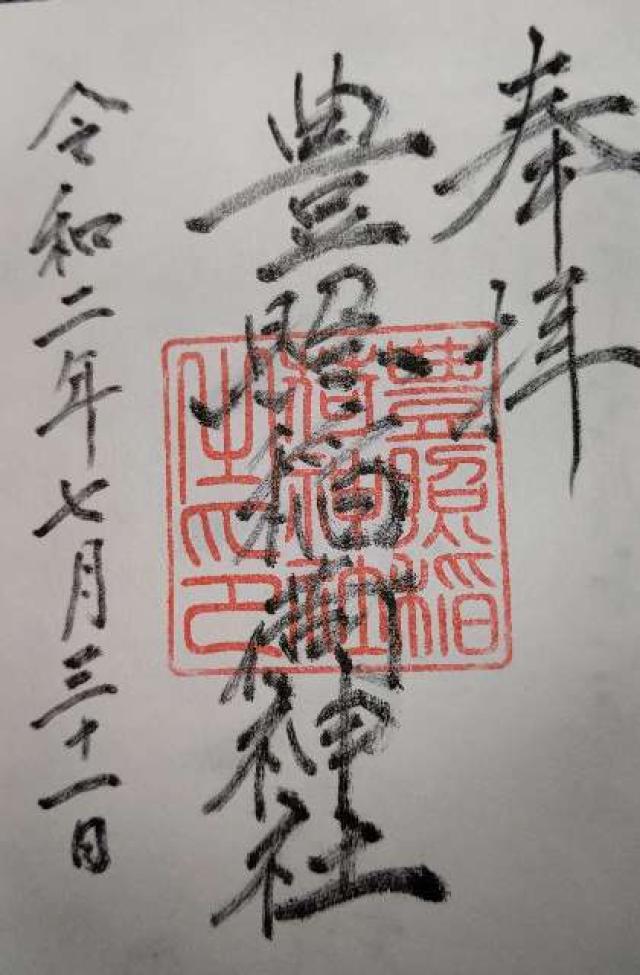 奉拝
豊照稲荷神社
豊照稲
荷神社
之印
令和二年七月三十一日